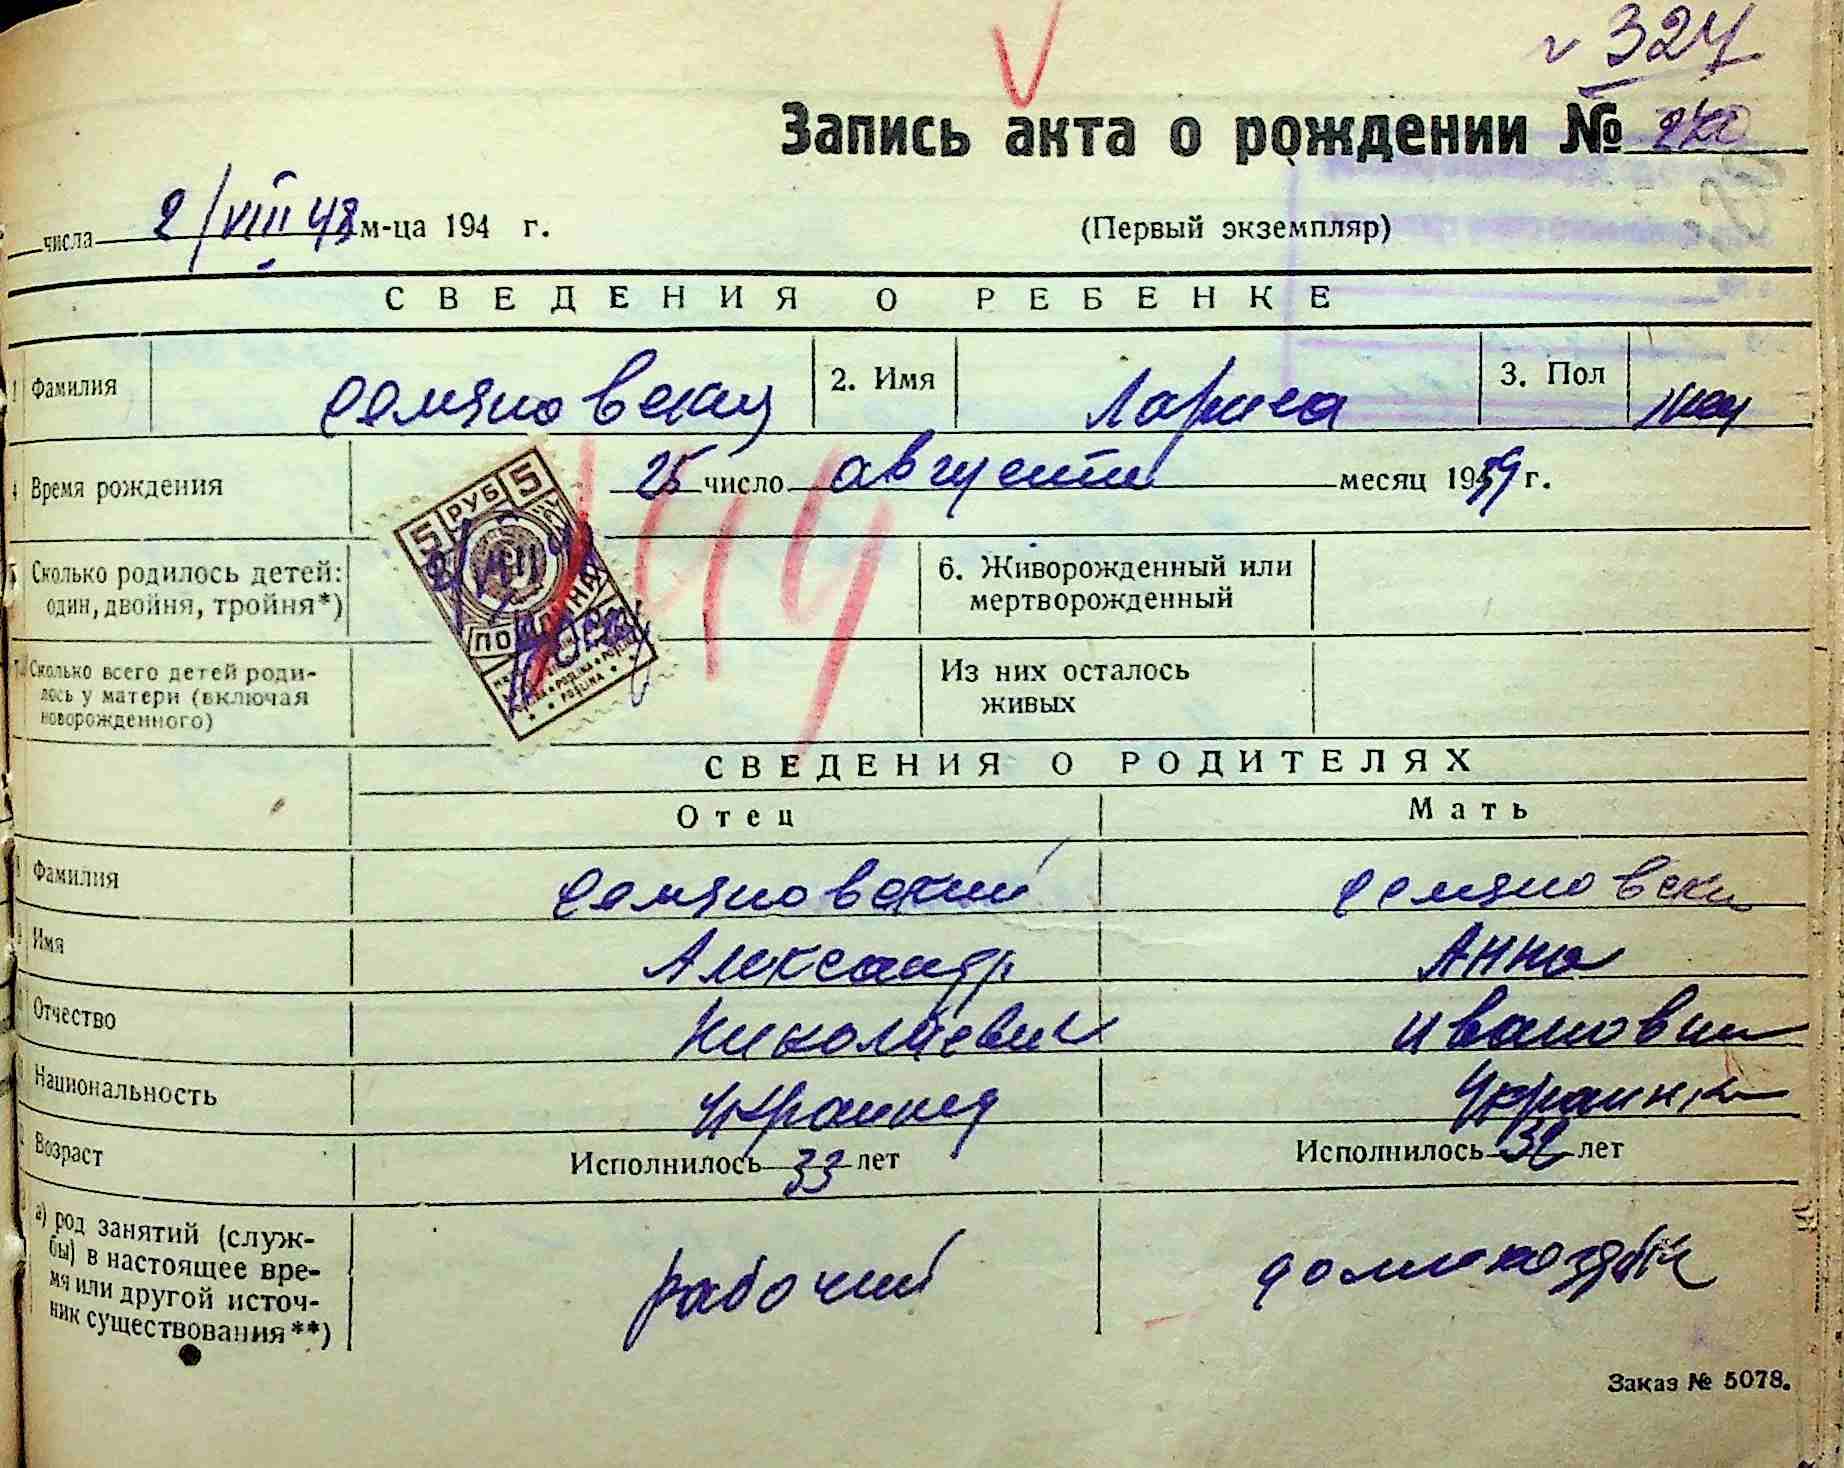 № 324
Запись акта о рождении № 240
числа 2/VIII 48 м-ца 194 г. (Первый экземпляр)
СВЕДЕНИЯ О РЕБЕНКЕ
Фамилия Семяновски 2. Имя Лариса 3. Пол жен
Время рождения 25 число августа месяц 1939 г.
5 РУБ 5
Сколько родилось детей: один, двойня, тройня*) 6. Живорожденный или мертворожденный
Сколько всего детей родилось у матери (включая новорожденного) Из них осталось живых
СВЕДЕНИЯ О РОДИТЕЛЯХ
Отец Мать
Фамилия Семяновский Семяновски
Имя Александр Анна
Отчество Николаевич Ивановна
Национальность украинец украинка
Возраст Исполнилось 33 лет Исполнилось 32 лет
а) род занятий (службы) в настоящее время или другой источник существования**) рабочий домохозяйк
Заказ № 5078.